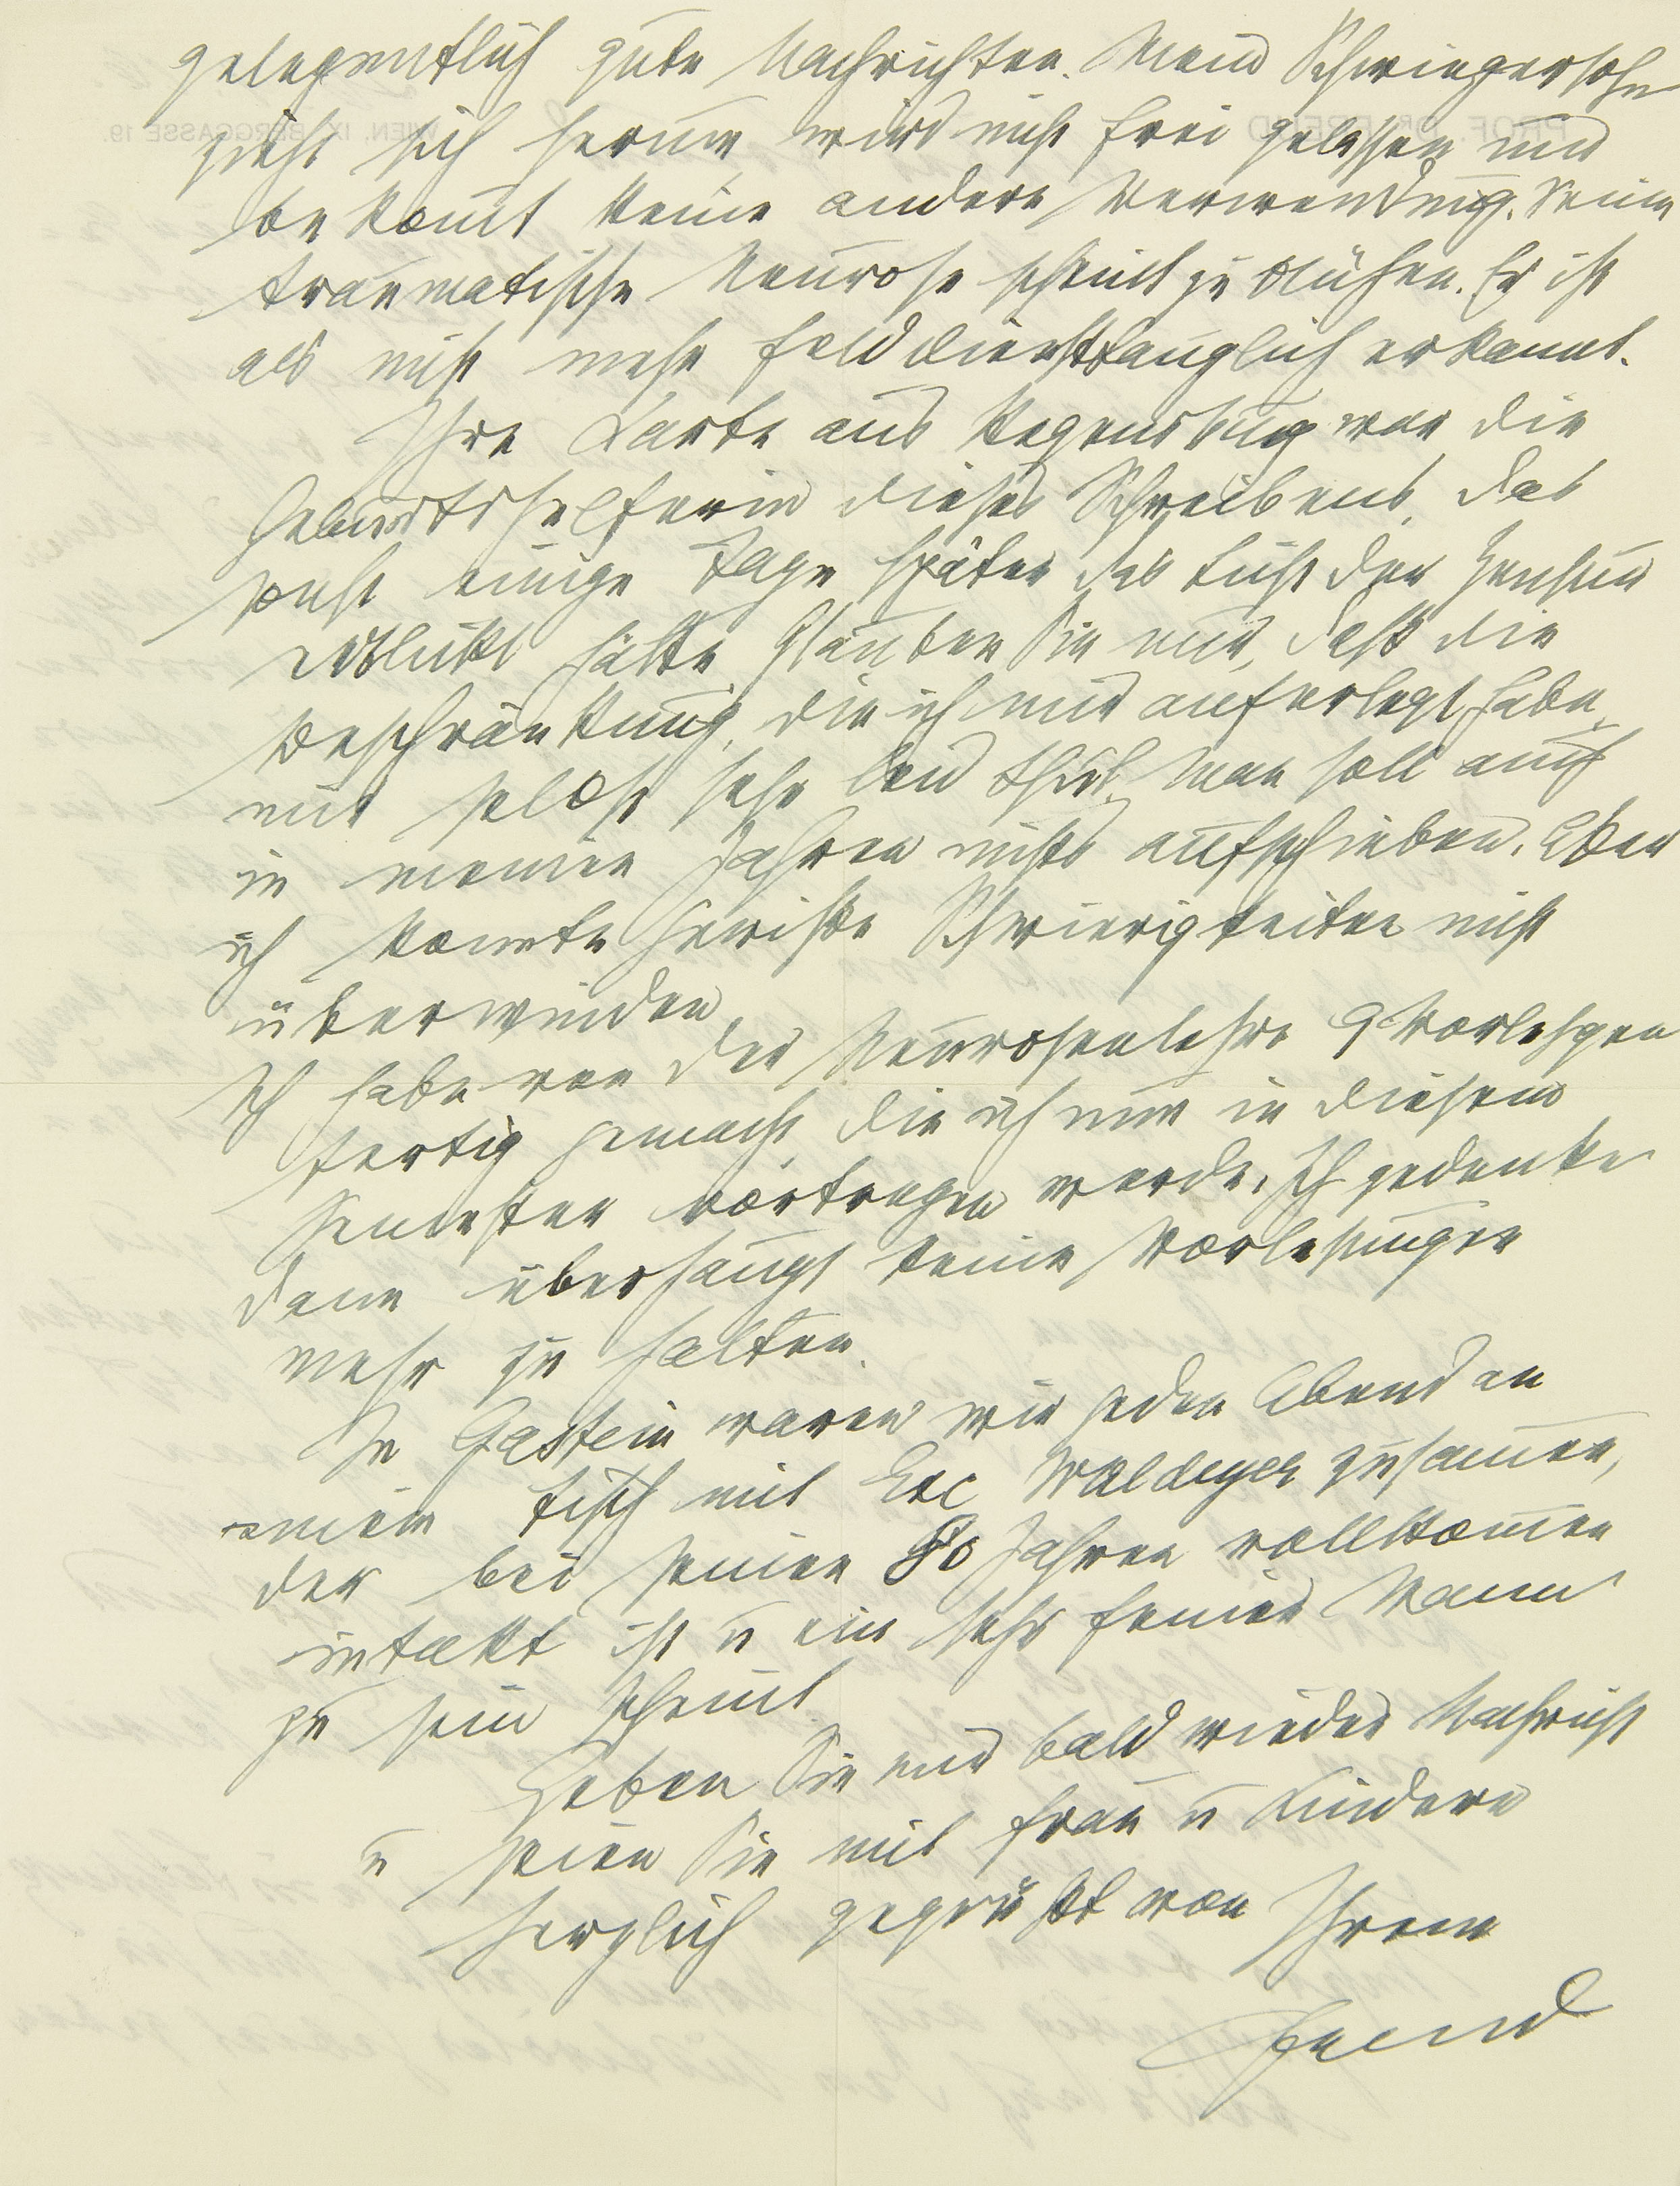 gelegentlich gute Nachrichten. Mein Schwiegersohn
zieht sich herum, wird nicht frei gelassen und
bekom̄t keine andere Verwendung. Seine
traumatische Neurose scheint zu blühen. Er ist
als nicht mehr felddiensttauglich erkannt.
Ihre Karte aus Regensburg war die
Geburtshelferin dieses Schreibens, das
sonst einige Tage später das Licht der Zensur
erblickt hätte. Glauben Sie mir, daß die
Beschränkung, die ich mir auferlegt habe,
mir selbst sehr leid thut. Man soll auch
in meinen Jahren nichts aufschieben. Aber
ich konnte gewiße Schwierigkeiten nicht
überwinden.
Ich habe von der Neurosenlehre 9 Vorlesgen
fertig gemacht, die ich nun in diesem
Semester vortragen werde. Ich gedenke
dann überhaupt keine Vorlesungen
mehr zu halten.
In Gastein waren wir jeden Abend an
einem Tisch mit Exc Waldeyer zusam̄en,
der bei seinen 80 Jahren vollkom̄en
intakt ist u ein sehr feiner Mann
zu sein scheint.
Geben Sie mir bald wieder Nachricht
u seien Sie mit Frau u Kindern
herzlich gegrüßt von Ihrem
Freud
PROF. DR. FREUD
WIEN, IX. BERGGASSE 19.